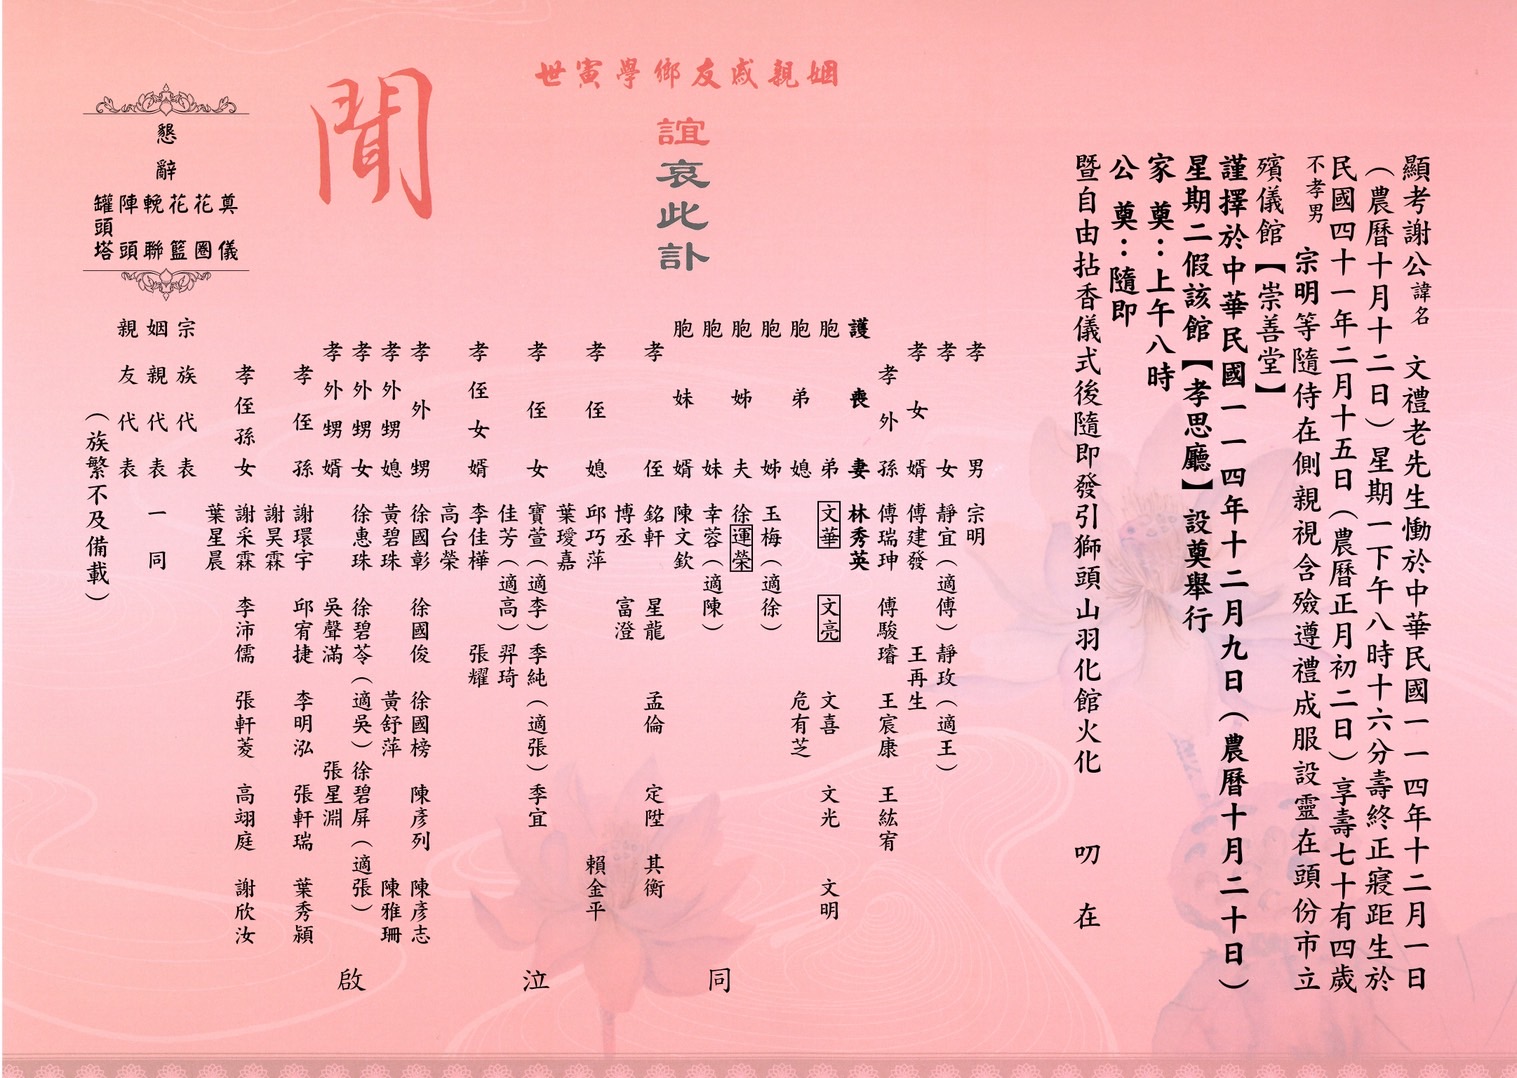 顯考謝公諱名 文禮老先生慟於中華民國一一四年十二月一日
（農曆十月十二日）星期一下午八時十六分壽終正寢距生於
民國四十一年二月十五日（農曆正月初二日）享壽七十有四歲
不孝男 宗明等隨侍在側親視含殮遵禮成服設靈在頭份市立
殯儀館【崇善堂】
謹擇於中華民國一一四年十二月九日（農曆十月二十日）
星期二假該館【孝思廳】設奠舉行
家 奠：上午八時
公 奠：隨即
暨自由拈香儀式後隨即發引獅頭山羽化館火化 叨 在
姻親戚友鄉學寅世
誼哀此訃
聞
孝男 宗明
孝女 靜宜（適傅） 靜玫（適王）
孝女婿 傅建發 王再生
孝外孫 傅瑞珅 傅駿璿 王宸康 王紘宥
護喪妻 林秀英
胞弟 文華 文亮 文喜 文光 文明
胞弟媳 危有芝
胞姊 玉梅（適徐）
胞姊夫 徐運榮
胞妹 幸蓉（適陳）
胞妹婿 陳文欽
孝侄 銘軒 星龍 孟倫 定陞 其衡
博丞 富澄
孝侄媳 邱巧萍 賴金平
葉璦嘉
孝侄女 寶萱（適李） 李純（適張） 李宜
佳芳（適高） 羿琦
孝侄女婿 李佳樺 張耀
高台榮
孝外甥 徐國彰 徐國俊 徐國榜 陳彥列 陳彥志
孝外甥媳 黃碧珠 黃舒萍 陳雅珊
孝外甥女 徐惠珠 徐碧苓（適吳） 徐碧屏（適張）
孝外甥婿 吳聲滿 張星淵
孝侄孫 謝環宇 邱宥捷 李明泓 張軒瑞 葉秀潁
謝昊霖
孝侄孫女 謝采霖 李沛儒 張軒菱 高翊庭 謝欣汝
葉星晨
宗族代表
姻親代表 一同
親友代表
（族繁不及備載）
同 泣 啟
懇辭
奠儀
花圈
花籃
輓聯
陣頭
罐頭塔